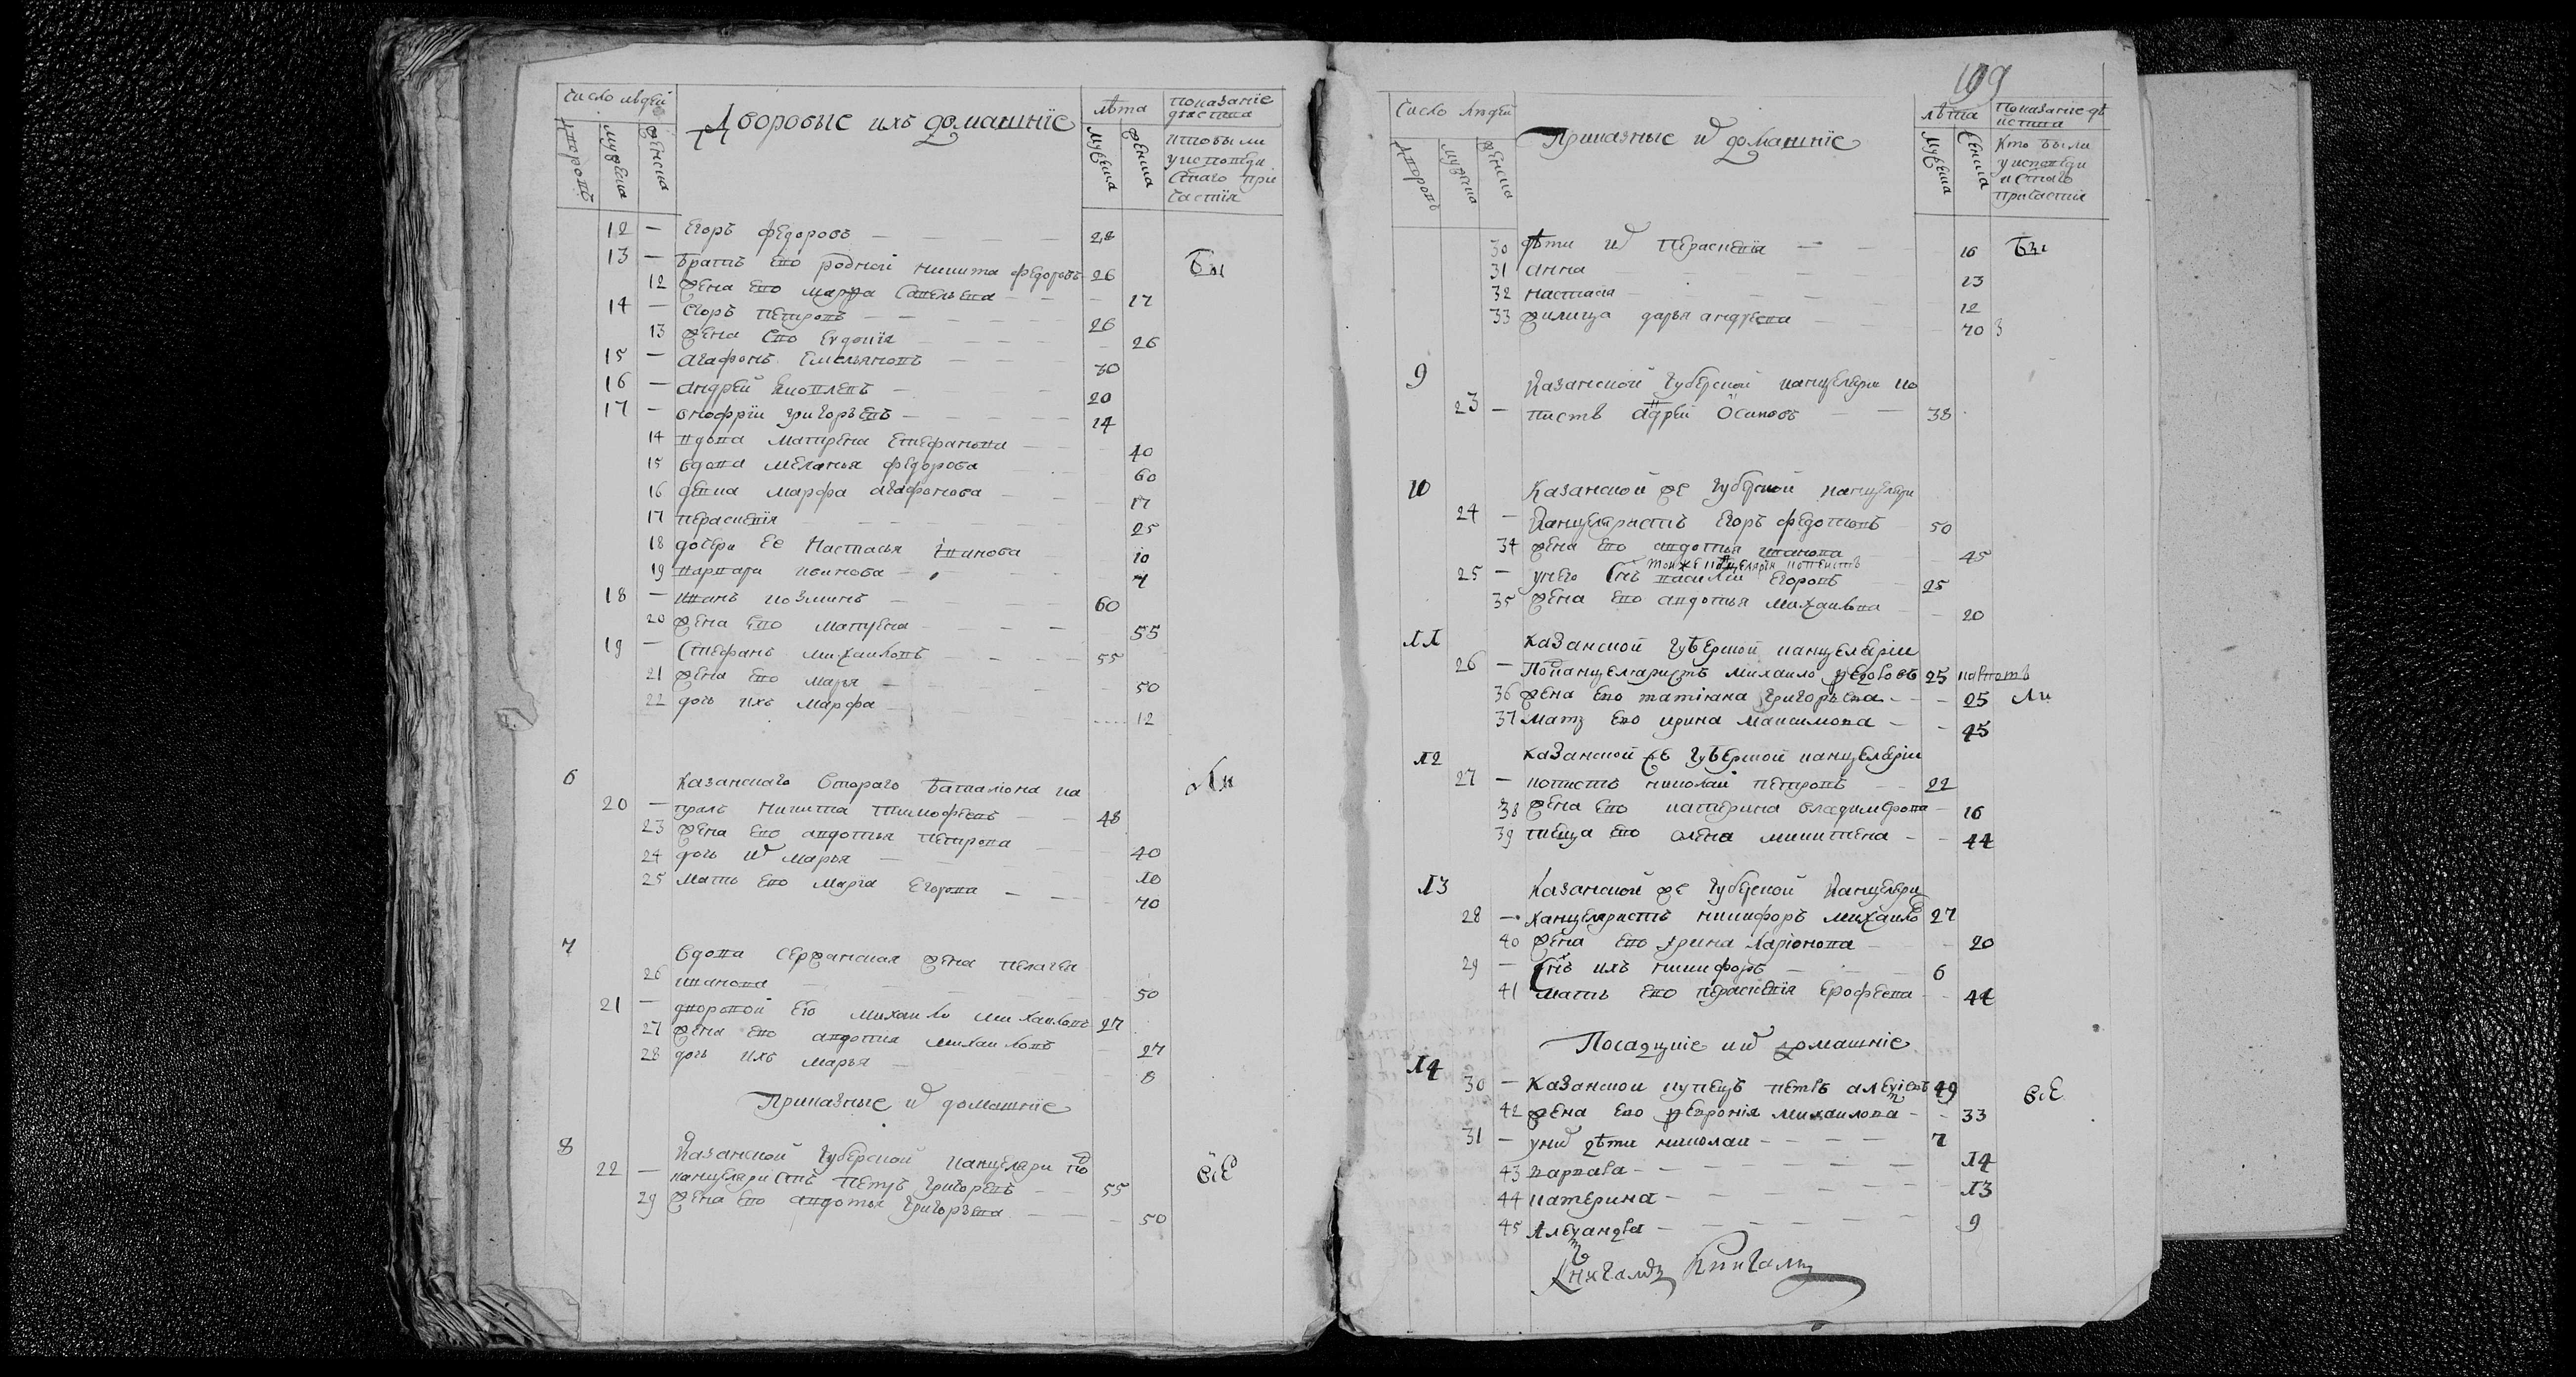 Число людей
Дворовъ
Мужеска
Женска
Дворовые ихъ домашнїе
лѣта
Мужеска
Женска
показанїе
действа
кто были
у исповеди
Стаго при
частїя
12 — Егоръ Федоровъ — 28
13 — братъ его родной никита федоровъ 26 Бы
12 жена его марфа Савельева — 17
14 — Егоръ петровъ — 26
13 жена Его Евдокїя — 26
15 — агафонъ Емельяновъ — 30
16 — андрей — 20
17 — онофрїи григорьевъ — 14
14 вдова матрена Епефанова — 40
15 вдова меланья федорова — 60
16 девка марфа агафонова — 17
17 перасковїя — 25
18 дочери Ее Настасья Іванова — 10
19 варвара — 7
18 — иванъ козминъ — 60
20 жена Его матрена — 55
19 — Стефанъ михаиловъ — 55
21 жена Его марья — 50
22 дочь ихъ марфа — 12
6 Казанскаго Втораго баталїона ка Ли
20 — пралъ никита тимофеевъ — 48
23 жена Его авдотья петрова — 40
24 дочь их марья — 10
25 мать Его марїа Егорова — 70
7 Вдова сержанская жена пелагея
26 иванова — 50
21 — дворовой Ею михаило михаиловъ 27
27 жена Его авдотия михаилова — 27
28 дочь ихъ марья — 8
Приказные их домашнїе
8 Казанской губерской канцелари под всѣ
22 — канцеляристъ петръ григоревъ — 55
29 жена Его авдотья григорьева — 50
199
Число людей
Дворовъ
Мужеска
Женска
Приказные их домашнїе
лѣта
Мужеска
Женска
Показанїе дѣ
иства
Кто были
у исповеди
и стаго
причастия
30 дѣти их перасковїя — 16 Бы
31 анна — 13
32 настасia — 12
33 жилица дарья андреева — 70
9 Казанской губерской канцелярии ко
23 — пистъ андрей Осиповъ — 38
10 Казанской же губерской канцеляри
24 — Канцеляристъ Егоръ федотовъ — 50
34 жена Его авдотья иванова — 45
тоиже канцелярїи копеистъ
25 — у него Снъ василїи Егоровъ — 25
35 жена Его авдотья михаилова — 20
11 казанской губерской канцелярїи
26 — Подканцеляристъ михаило федоровъ 25
36 жена Его татїана григорьева — 25 Ли
37 мать Его ирина максимова — 45
12 казанской же губерской канцелярїи
27 — копистъ николай петровъ — 22
38 жена Его катерина владимерова — 16
39 теща Его олена микитена — 44
13 Казанской же губерской Канцеляри
28 — канцеляристъ никифоръ михаило 27
40 жена Его ирина ларїонова — 20
29 — Снъ ихъ никифоръ — 6
41 мать Его перасковїя Ерофеева — 44
Посадцкие их домашнїе
14
30 — казанской купецъ петръ алексїевъ 49 всЕ
42 жена Его февронїя михаилова — 33
31 — у них дѣти николаи — 7
43 варвара — 14
44 катерина — 13
45 Александра — 9